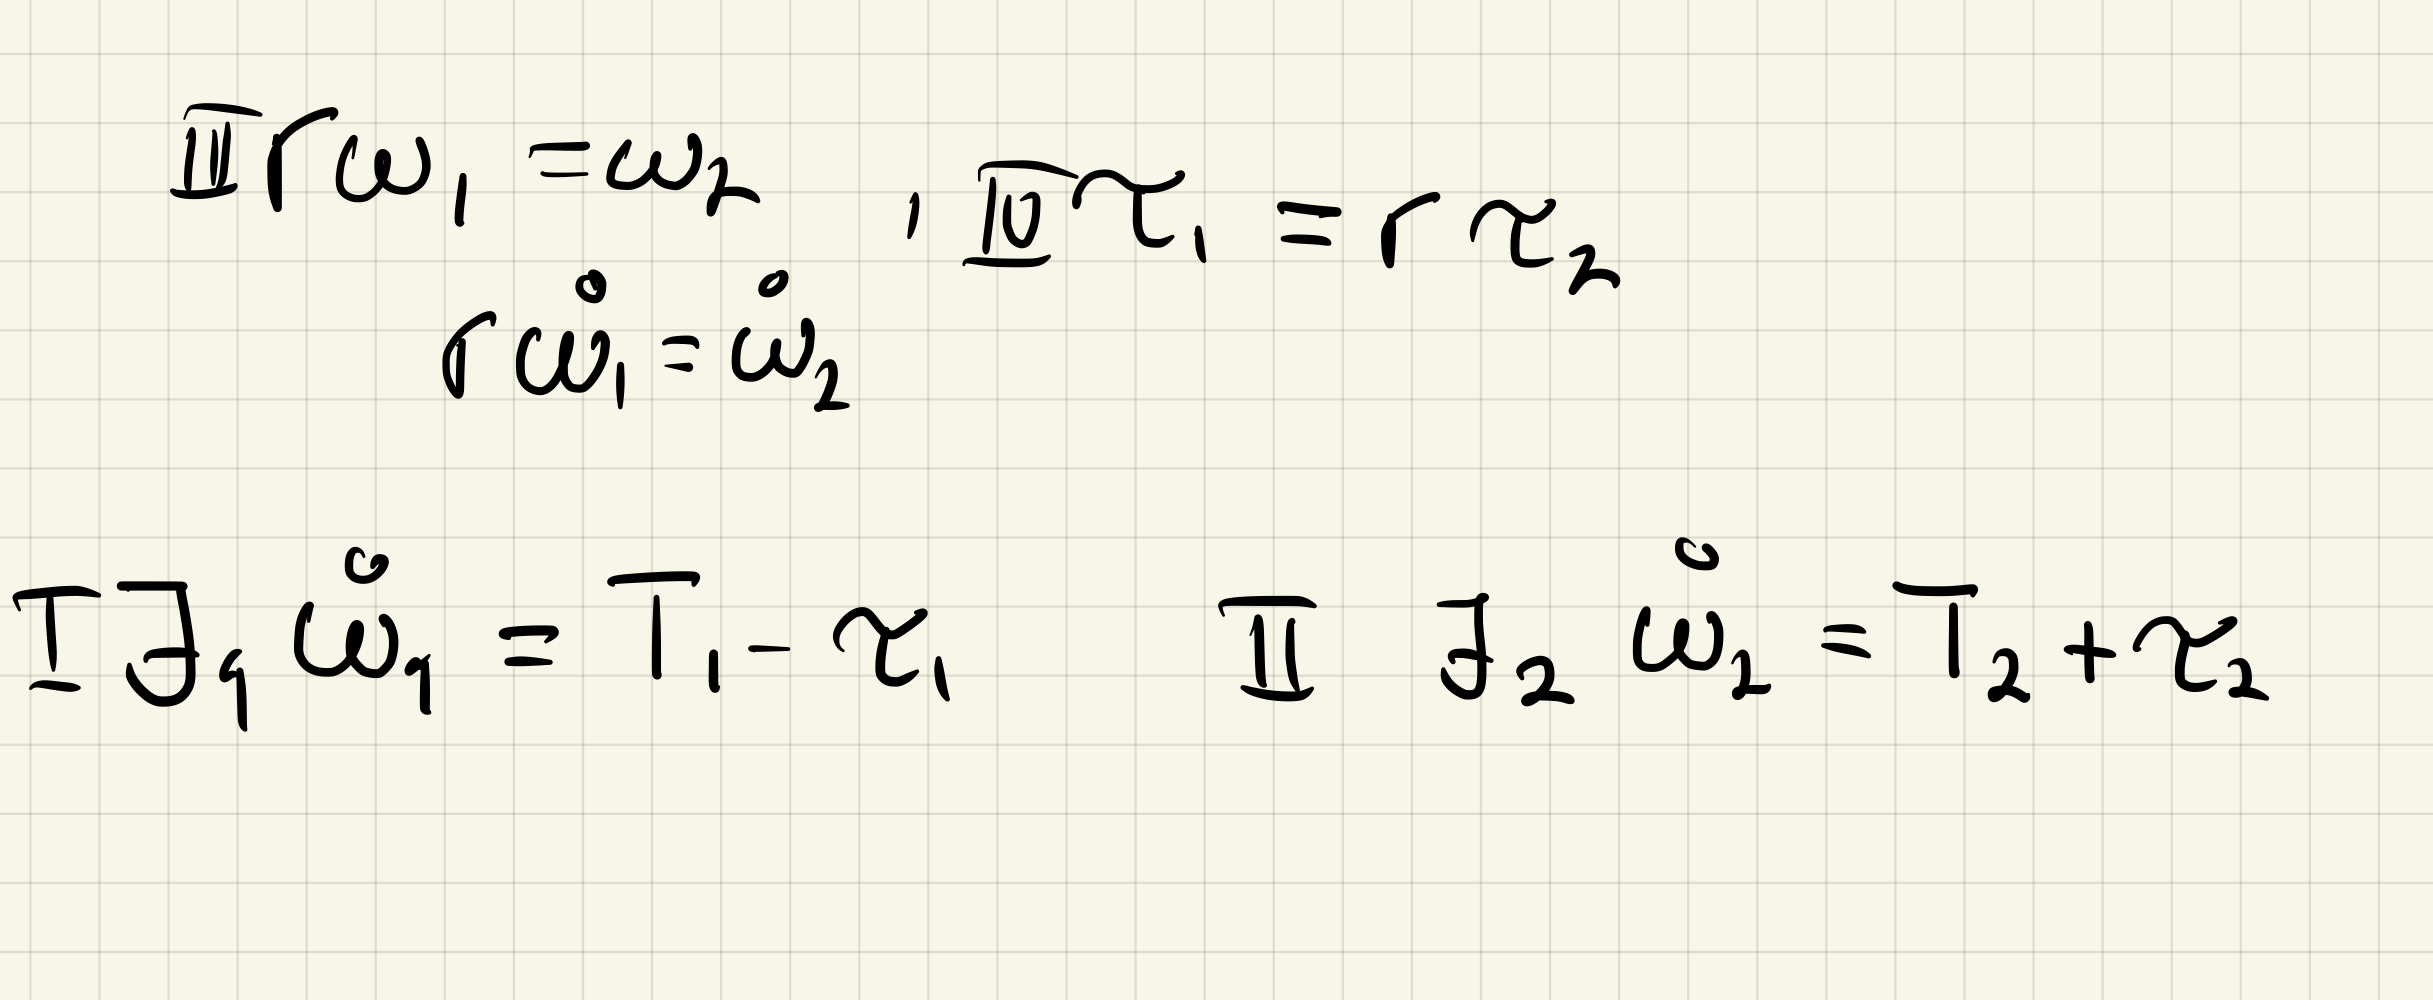 III rω₁ = ω₂ , IV τ₁ = r τ₂
rω̇₁ = ω̇₂
I J₁ ω̇₁ = T₁ - τ₁ II J₂ ω̇₂ = T₂ + τ₂